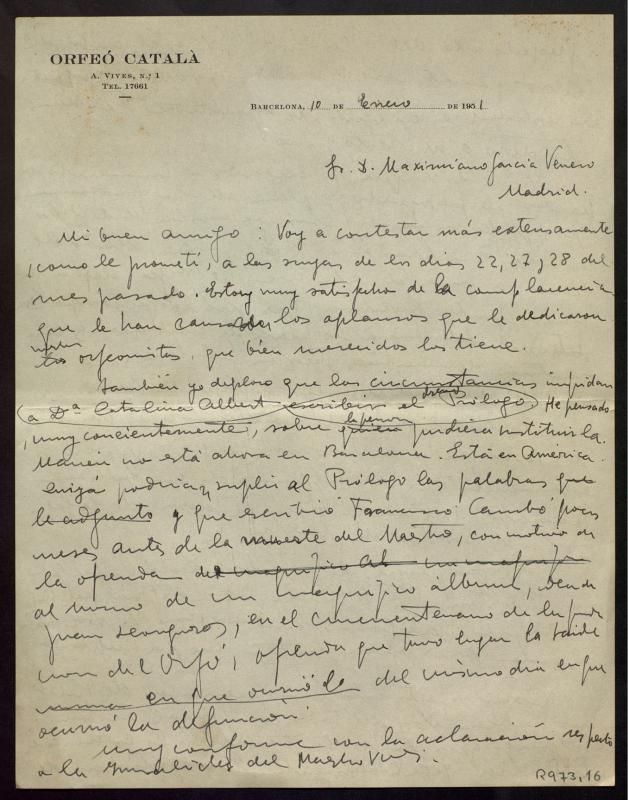 ORFEÓ CATALÀ
A. VIVES, N.º 1
TEL. 17661
BARCELONA, 10 DE Enero DE 1951
Sr. D. Maximiano Garcia Venero
Madrid.
Mi buen amigo: Voy a contestar más extensamente
, como le prometí, a las suyas de los dias 22, 27 y 28 del
mes pasado. Estoy muy satisfecho de la complacencia
que le han causado los aplausos que le dedicaron
nuestros orfeonistas, que bién merecidos los tiene.
También yo deploro que las circunstancias impidan
a Dª Catalina Albert escribir el deseado Prólogo. He pensado
, muy concientemente, sobre quien pudiera instituirla.
Marién no está ahora en Barcelona. Está en America.
Quizá podrian suplir al Prólogo las palabras que
le adjunto y que escribió Francisco Cambó pocos
meses antes de la muerte del Maestro, con motivo de
la ofrenda del magnífico al un magnífico
al mismo de un magnífico álbum,
Juan, en el cincuentenario de la funda
cion del Orfeó, ofrenda que tuvo lugar la tarde
misma en que ocurrió la del mismo dia en que
ocurrió la defunción.
Muy conforme con la aclaración respecto
a la del Maestro Vives.
R973,16